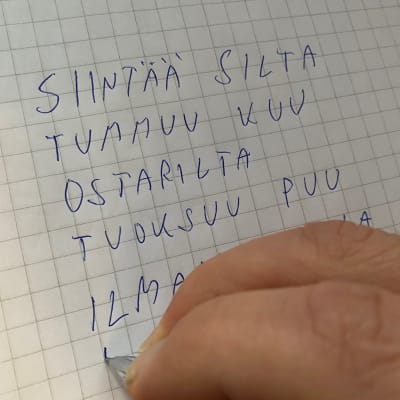 SIINTÄÄ SILTA
TUMMUU KUU
OSTARILTA
TUOKSUU PUU